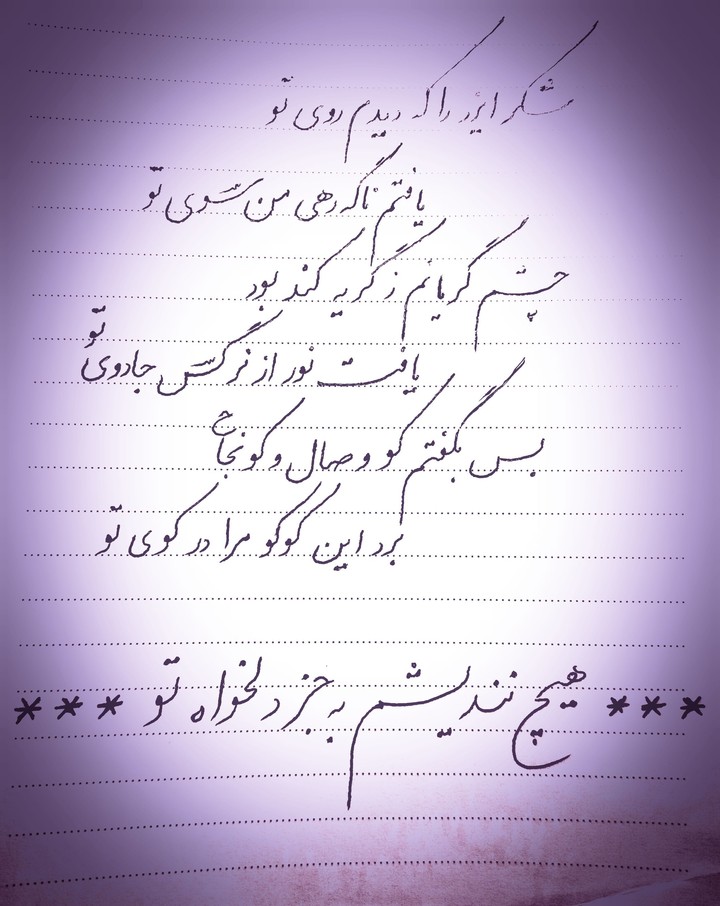 شکر ایزد را که دیدم روی تو
یافتم ناگه رهی من سوی تو
چشم گریانم ز گریه کند بود
یافت نور از نرگس جادوی تو
بس بگفتم کو وصال و کو نجاح
برد این کوکو مرا در کوی تو
*** هیچ نندیشم به جز دلخواه تو ***